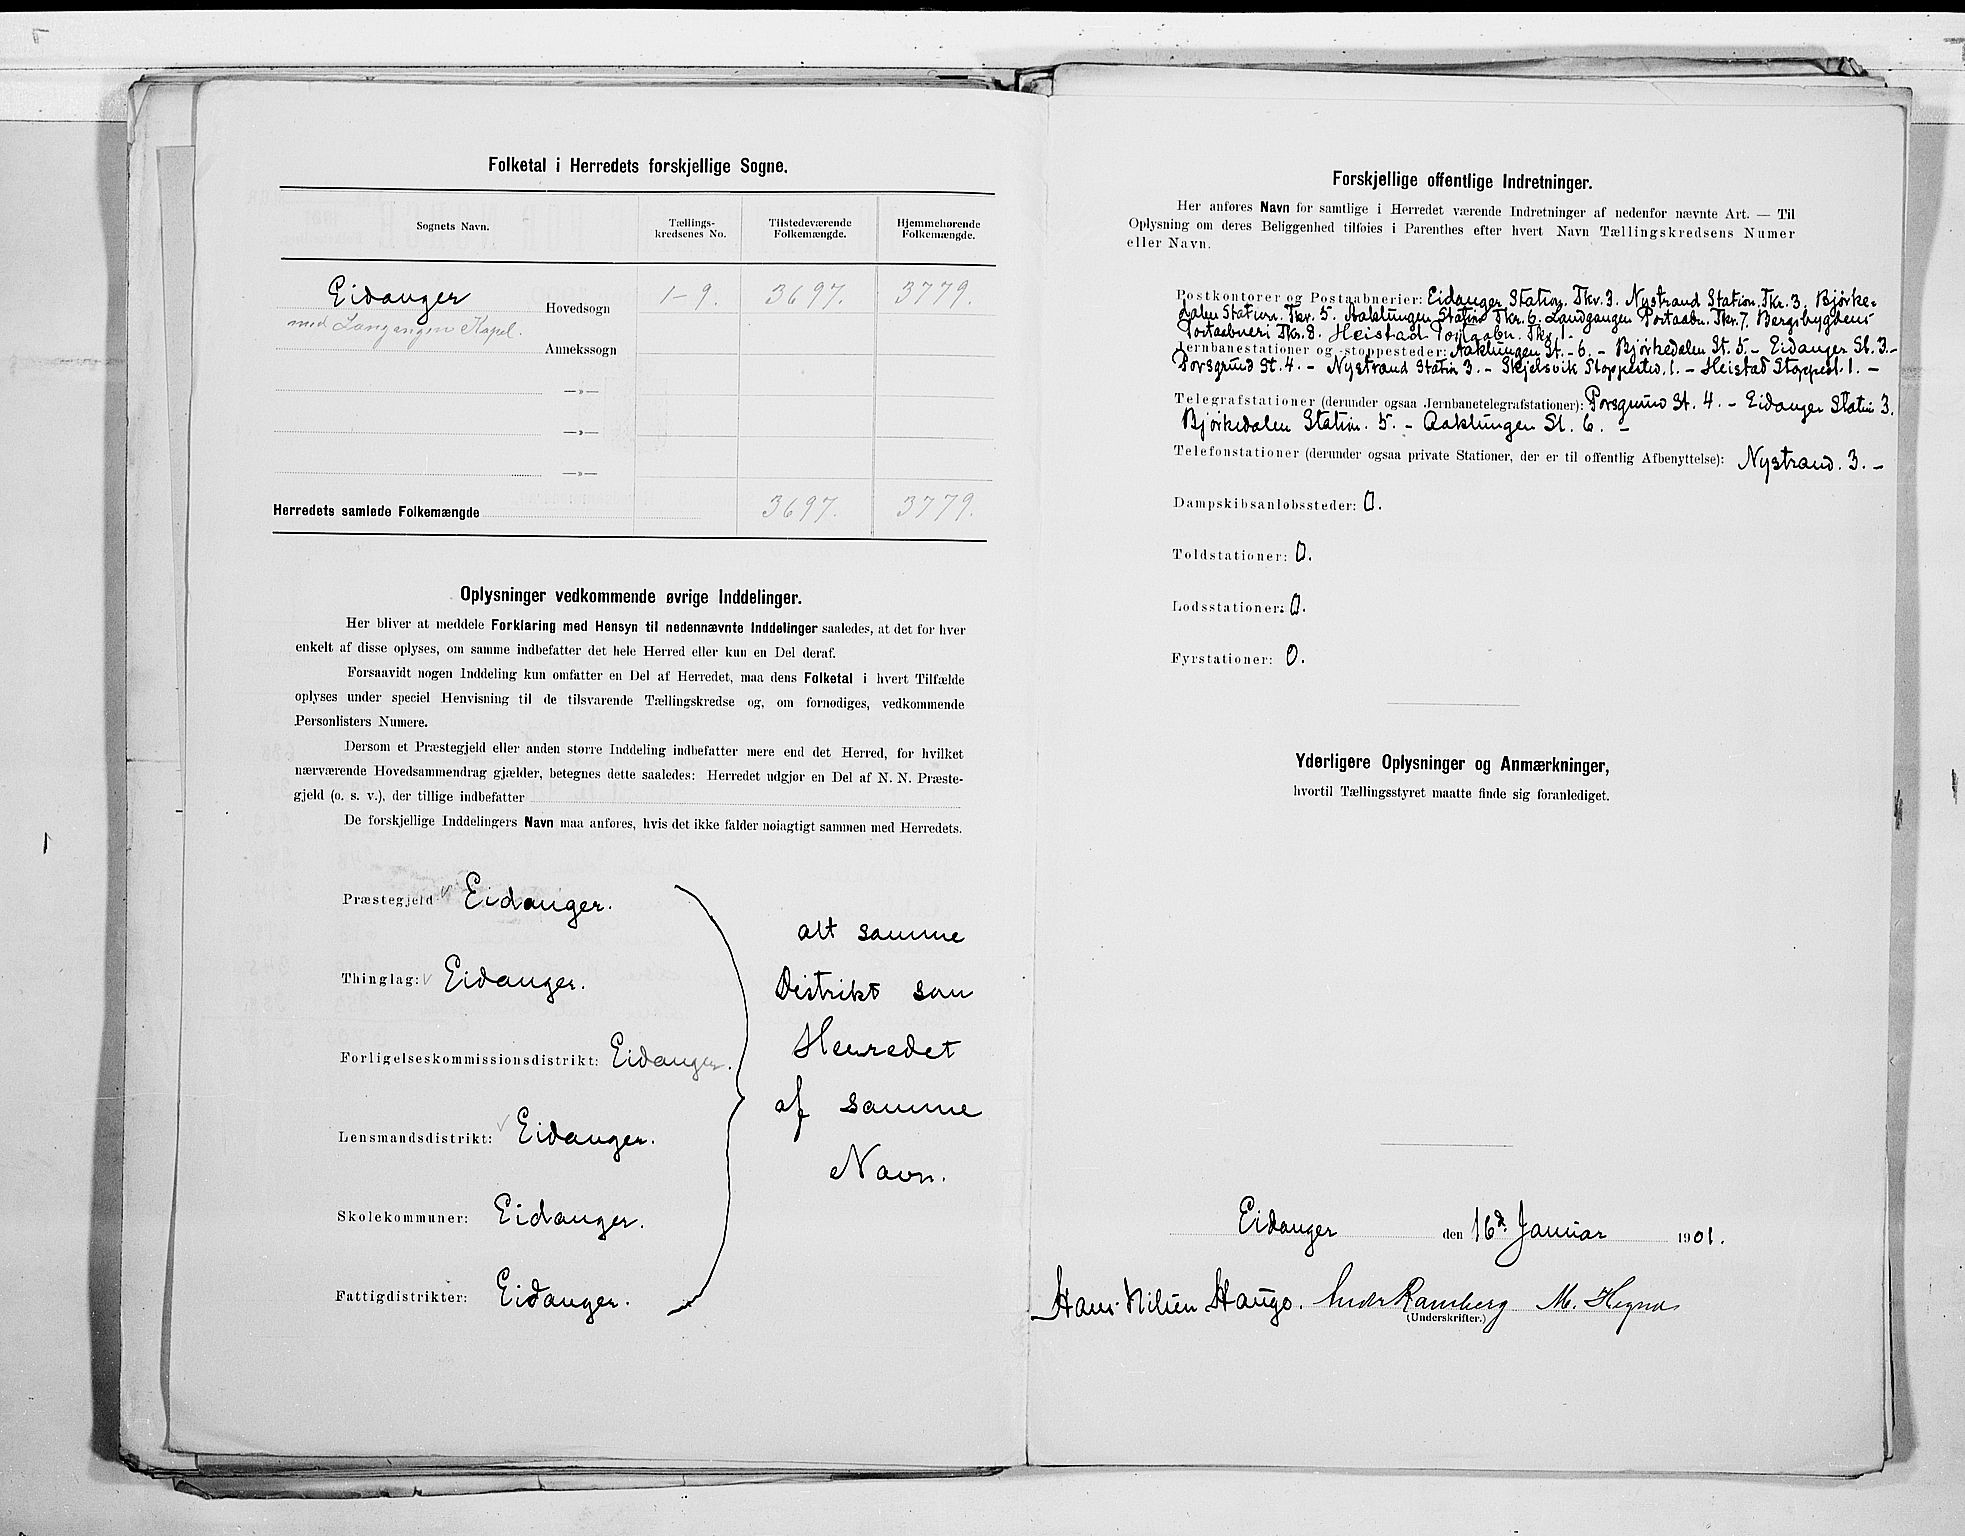 Folketal i Herredets forskjellige Sogne.
Sognets Navn.
Tællings-
kredsenes No.
Tilstedeværende
Folkemængde.
Hjemmehørende
Folkemængde.
Eidanger Hovedsogn 1-9. 3697. 3779.
med Langangen Kapel.
Annekssogn
—»—
—»—
—»—
Herredets samlede Folkemængde 3697. 3779.
Oplysninger vedkommende øvrige Inddelinger.
Her bliver at meddele Forklaring med Hensyn til nedennævnte Inddelinger saaledes, at det for hver
enkelt af disse oplyses, om samme indbefatter det hele Herred eller kun en Del deraf.
Forsaavidt nogen Inddeling kun omfatter en Del af Herredet, maa dens Folketal i hvert Tilfælde
oplyses under speciel Henvisning til de tilsvarende Tællingskredse og, om fornødiges, vedkommende
Personlisters Numere.
Dersom et Præstegjeld eller anden større Inddeling indbefatter mere end det Herred, for hvilket
nærværende Hovedsammendrag gjælder, betegnes dette saaledes: Herredet udgjør en Del af N. N. Præste-
gjeld (o. s. v.), der tillige indbefatter
De forskjellige Inddelingers Navn maa anføres, hvis det ikke falder nøiagtigt sammen med Herredets.
Præstegjeld Eidanger.
Thinglag: Eidanger.
Forligelseskommissionsdistrikt: Eidanger.
Lensmandsdistrikt: Eidanger.
Skolekommuner: Eidanger.
Fattigdistrikter: Eidanger.
alt samme
Distrikt som
Herredet
af samme
Navn.
Forskjellige offentlige Indretninger.
Her anføres Navn for samtlige i Herredet værende Indretninger af nedenfor nævnte Art. — Til
Oplysning om deres Beliggenhed tilføies i Parenthes efter hvert Navn Tællingskredsens Numer
eller Navn.
Postkontorer og Postaabnerier: Eidanger Station. Tkr. 3. Nystrand Station. Tkr. 3. Bjørke-
dalen Station. Tkr. 5. Aaklungen Station Tkr. 6. Landgangen Postaabn. Tkr. 7. Bergsbygdens
Postaabneri Tkr. 8. Heistad Postaabn. Tkr. 1.
Jernbanestationer og -stoppesteder: Aaklungen St. - 6. - Bjørkedalen St. 5. - Eidanger St. 3. -
Porsgrund St. 4. - Nystrand Station 3. - Skjelsvik Stoppested. 1. - Heistad Stoppest. 1. -
Telegrafstationer (derunder ogsaa Jernbanetelegrafstationer): Porsgrund St. 4. - Eidanger Station 3.
Bjørkedalen Station. 5. - Aaklungen St. 6. -
Telefonstationer (derunder ogsaa private Stationer, der er til offentlig Afbenyttelse): Nystrand. 3. -
Dampskibsanløbssteder: 0.
Toldstationer: 0.
Lodsstationer: 0.
Fyrstationer: 0.
Yderligere Oplysninger og Anmærkninger,
hvortil Tællingsstyret maatte finde sig foranlediget.
Eidanger den 16d. Januar 1901.
Hans Nilsen Haugo. Ramberg M. Hegna
(Underskrifter.)